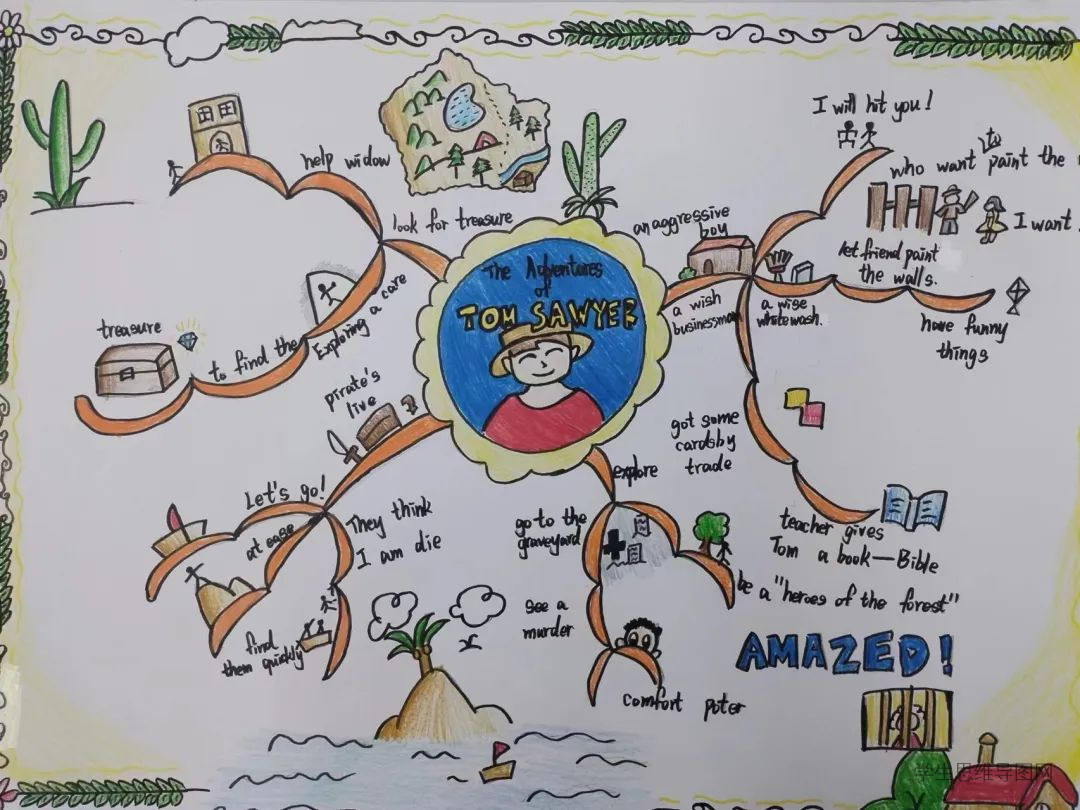 The Adventures
of
TOM SAWYER
help widow
look for treasure
Exploring a care
to find the
treasure
pirate's
live
Let's go!
at ease
find
them quickly
They think
I am die
explore
go to the
graveyard
see a
murder
comfort poter
be a "heroes of the forest"
an aggressive
boy
I will hit you!
who want to paint the
I want
let friend paint
the walls.
have funny
things
a wise
whitewash.
a wish
businessman
got some
cardsby
trade
teacher gives
Tom a book—Bible
AMAZED!
学生思维导图网